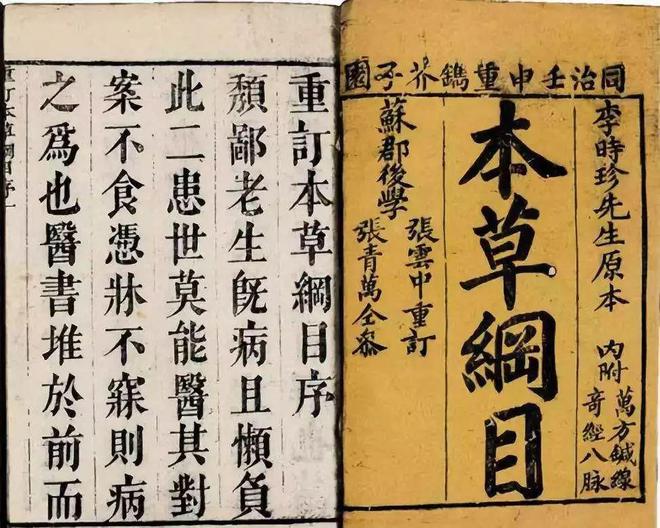 同治壬申重鐫芥子園
李時珍先生原本
內附
萬方鍼線
奇經八脉
本草綱目
張雲中重訂
蘇郡後學
張青萬仝參
重訂本草綱目序
頹鄙老生既病且懶負
此二患世莫能醫其對
案不食憑牀不寐則病
之爲也醫書堆於前而
重訂本草綱目序一